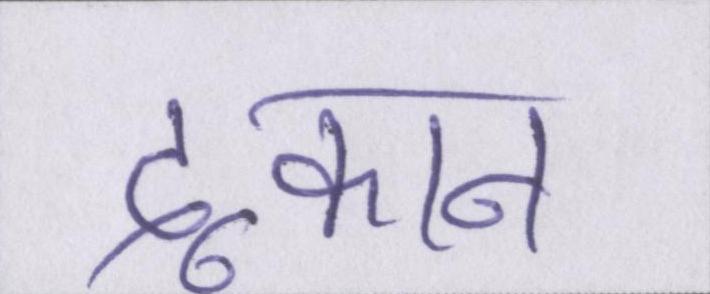 दूकान